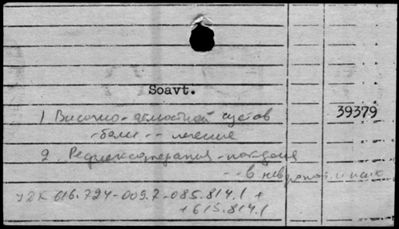 Soavt.
39379
1 Височно-челюстной сустав
-боли -- лечение
2. Рефлексотерапия
-- в
УДК 616.724-009.7-085.814.1 +
+615.814.1